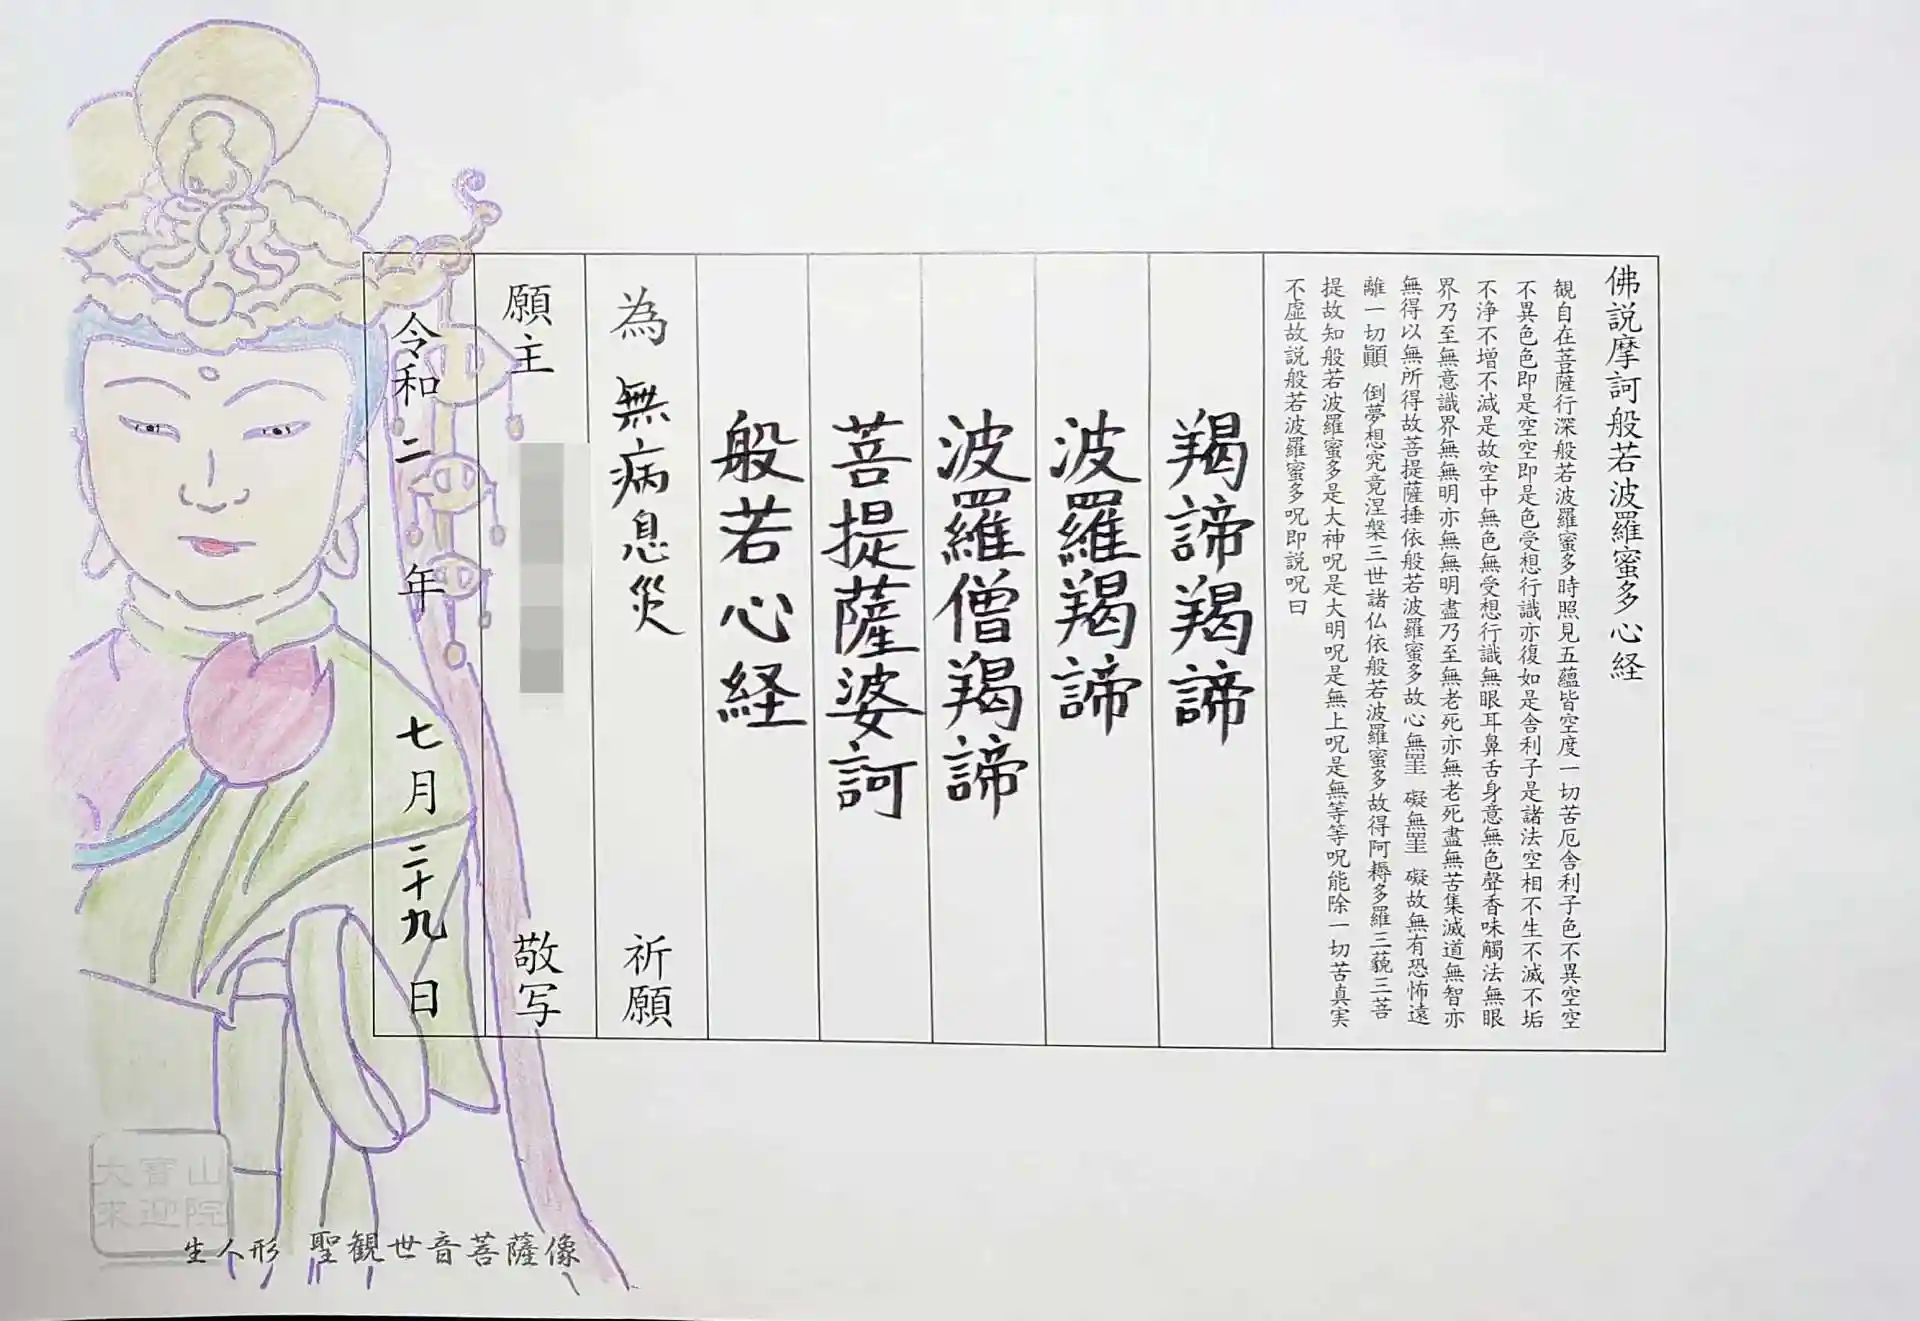 佛説摩訶般若波羅蜜多心経
観自在菩薩行深般若波羅蜜多時照見五蘊皆空度一切苦厄舎利子色不異空空
不異色色即是空空即是色受想行識亦復如是舎利子是諸法空相不生不滅不垢
不浄不増不減是故空中無色無受想行識無眼耳鼻舌身意無色聲香味觸法無眼
界乃至無意識界無無明亦無無明盡乃至無老死亦無老死盡無苦集滅道無智亦
無得以無所得故菩提薩捶依般若波羅蜜多故心無罣 礙無罣 礙故無有恐怖遠
離一切顛 倒夢想究竟涅槃三世諸仏依般若波羅蜜多故得阿耨多羅三藐三菩
提故知般若波羅蜜多是大神呪是大明呪是無上呪是無等等呪能除一切苦真実
不虚故説般若波羅蜜多呪即説呪曰
羯諦羯諦
波羅羯諦
波羅僧羯諦
菩提薩婆訶
般若心経
為 無病息災 祈願
願主 敬写
令和二年 七月二十九日
大寶山
來迎院
生人形 聖観世音菩薩像